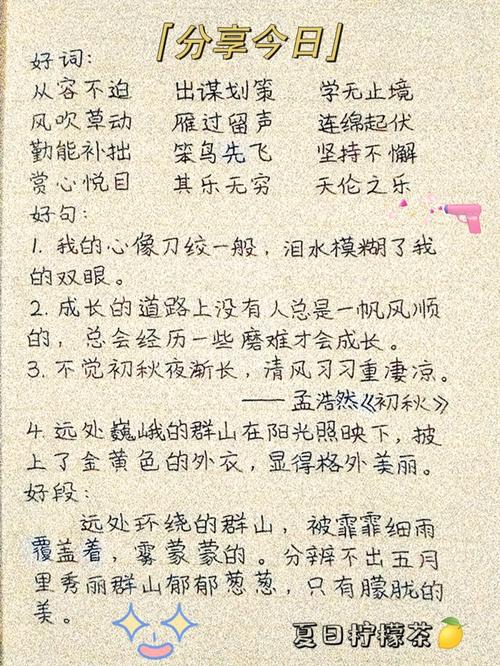 「分享今日」
好词:
从容不迫 出谋划策 学无止境
风吹草动 雁过留声 连绵起伏
勤能补拙 笨鸟先飞 坚持不懈
赏心悦目 其乐无穷 天伦之乐
好句:
1. 我的心像刀绞一般，泪水模糊了我
的双眼。
2. 成长的道路上没有人总是一帆风顺
的，总会经历一些磨难才会成长。
3. 不觉初秋夜渐长，清风习习重凄凉。
——孟浩然《初秋》
4. 远处巍峨的群山在阳光照映下，披
上了金黄色的外衣，显得格外美丽。
好段:
远处环绕的群山，被霏霏细雨
覆盖着，雾蒙蒙的。分辨不出五月
里秀丽群山郁郁葱葱，只有朦胧的
美。
夏日柠檬茶